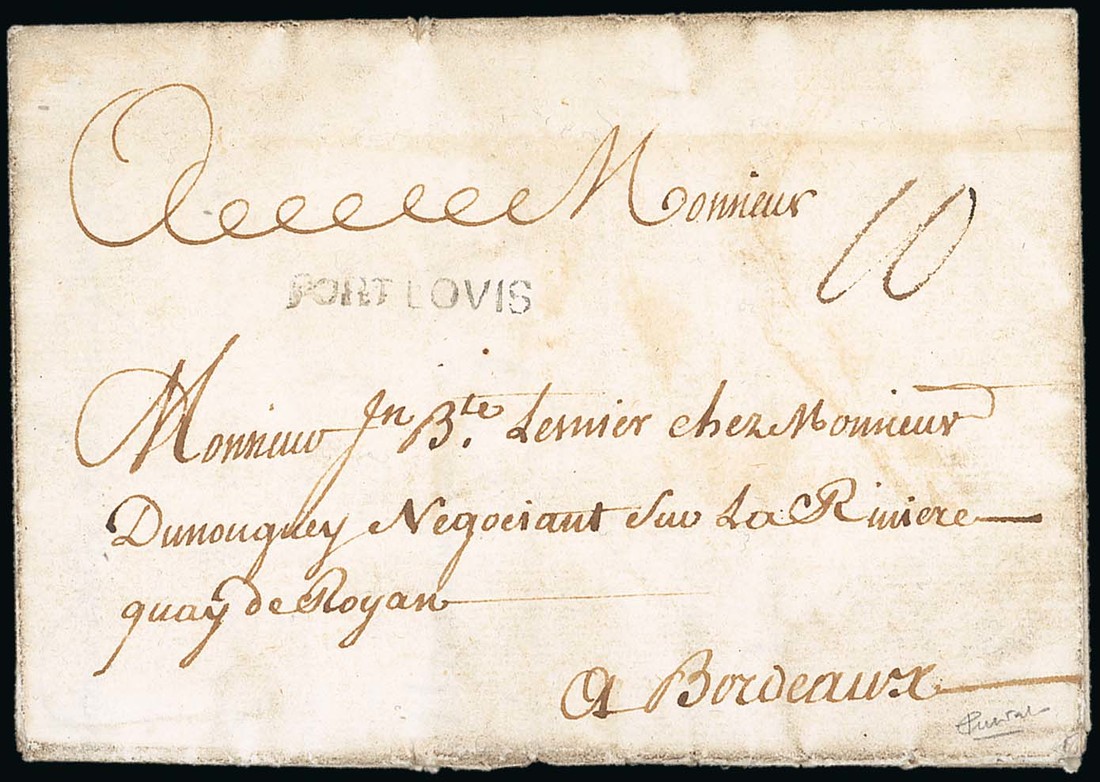 A Monsieur
10
PORT LOVIS
Monsieur Jn Bte. Lernier chez Monsieur
Dunouguey Negociant Sur La Riviere
quay de Royan
A Bordeaux